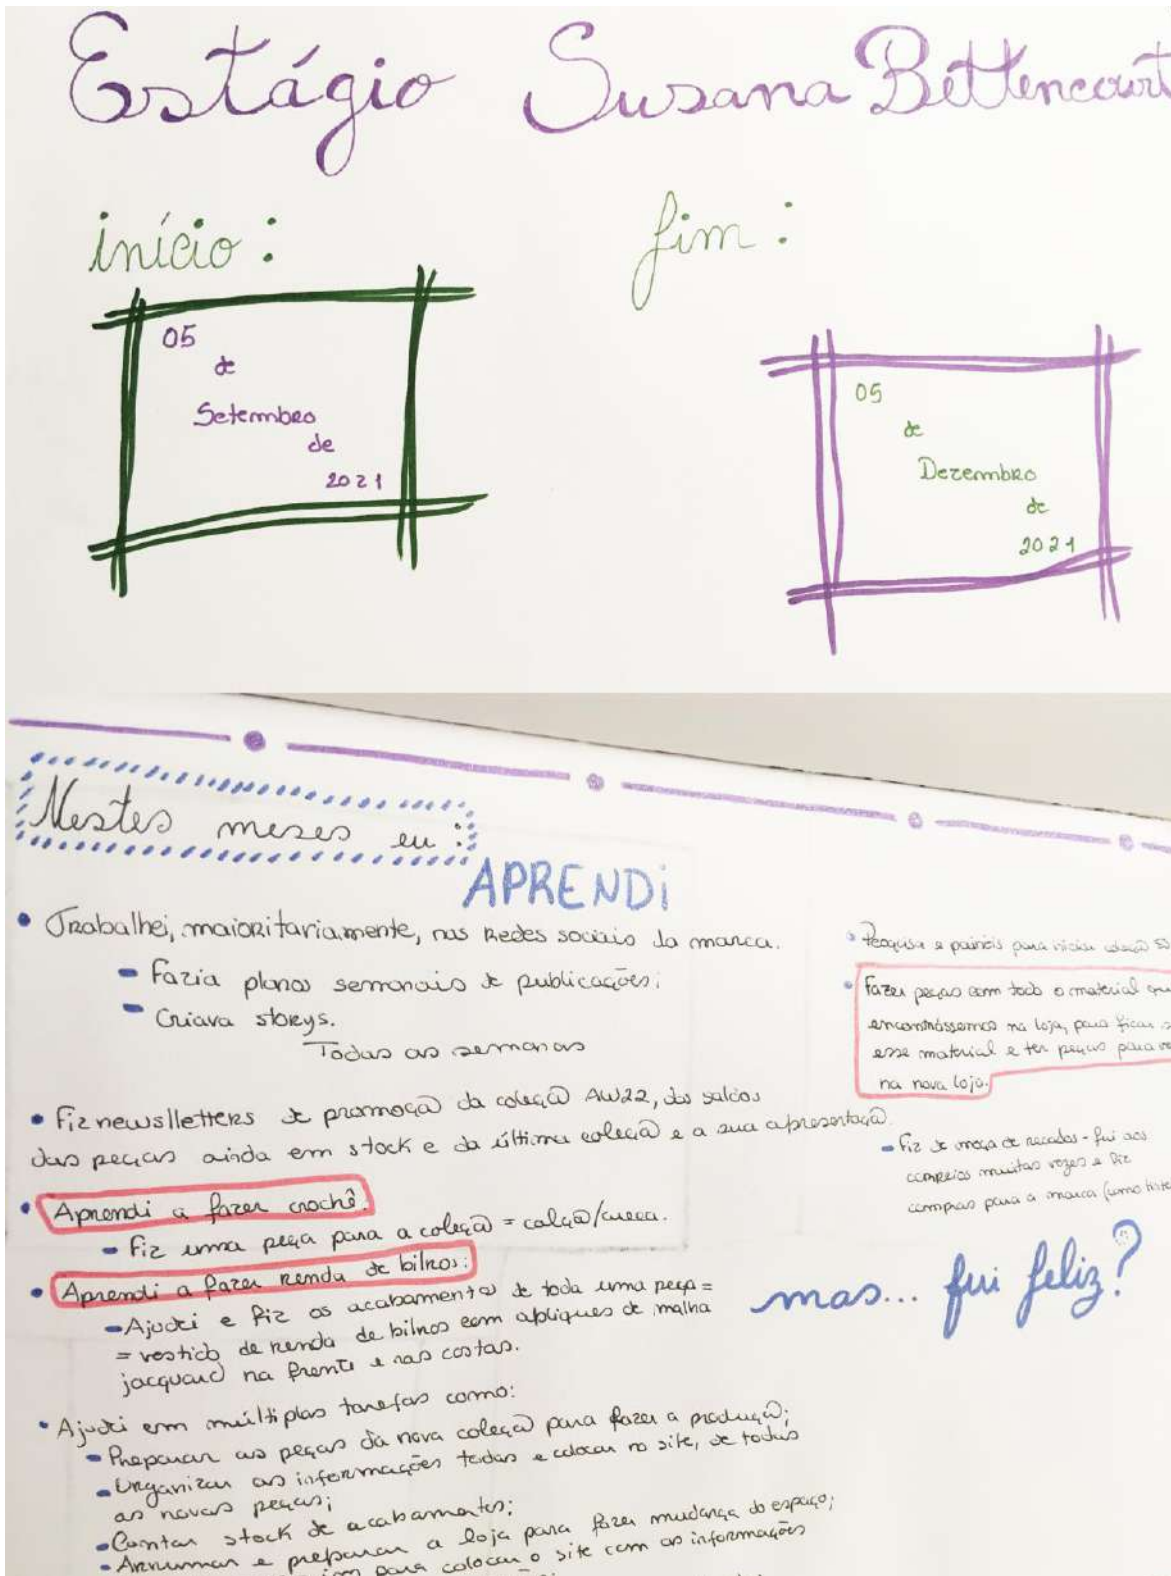 Estágio Susana Bettencourt
início :
05
de
Setembro
de
2021
fim :
05
de
Dezembro
de
2021
Nestes meses eu :
APRENDi
• Trabalhei, maioritariamente, nas redes sociais da marca.
- Fazia planos semanais de publicações;
- Criava storys.
Todas as semanas
• Fiz newslletters de promoção da coleção AW22, dos saldos
das peças ainda em stock e da última coleção e a sua apresentação.
• Aprendi a fazer crochê.
- Fiz uma peça para a coleção = calção/cueca.
• Aprendi a fazer renda de bilros:
- Ajudei e fiz os acabamentos de toda uma peça =
= vestido de renda de bilros com apliques de malha
jacquard na frente e nas costas.
• Ajudei em múltiplas tarefas como:
- Preparar as peças da nova coleção para fazer a produção;
- Organizar as informações todas e colocar no site, de todas
as novas peças;
- Contar stock de acabamentos;
- Arrumar e preparar a loja para fazer mudança do espaço;
para colocar o site com as informações
• Pesquisa e painéis para iniciar coleção
• Fazer peças com todo o material que
encontrássemos na loja, para ficar
esse material e ter peças para
na nova loja.
- Fiz de moça de recados - fui aos
correios muitas vezes e fiz
compras para a marca (uma
mas... fui feliz?